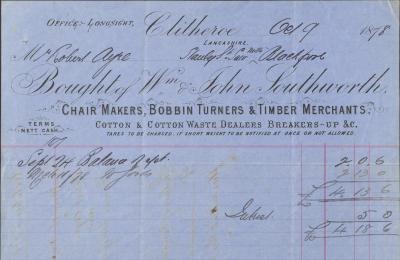 OFFICE:- LONGSIGHT, Clitheroe Oct 9 1878
LANCASHIRE.
Mr Robert Ayre Stanley St Saw Mills Blackpool
Bought of Wm & John Southworth,
CHAIR MAKERS, BOBBIN TURNERS & TIMBER MERCHANTS.
TERMS
NETT CASH.
COTTON & COTTON WASTE DEALERS BREAKERS-UP &C.
TARES TO BE CHARGED. IF SHORT WEIGHT TO BE NOTIFIED AT ONCE OR NOT ALLOWED.
Sept 24 Balance 2 0 6
To Goods 2 13 0
£ 4 13 6
Interest 5 0
£ 4 18 6